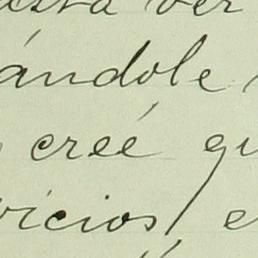 asta ver
ándole
creé qu
vicios, e